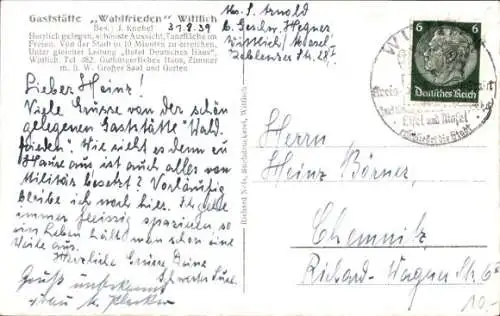 Gaststätte „Wahlfrieden" Wittlich
Bes.: J. Knebel 31.8.39
Herrlich gelegen, schönste Aussicht, Tanzfläche im
Freien. Von der Stadt in 10 Minuten zu erreichen.
Unter gleicher Leitung „Hotel Deutsches Haus",
Wittlich, Tel. 482. Gutbürgerliches Haus, Zimmer
m. fl. W. Großer Saal und Garten
Lieber Heinz!
Viele Grüsse von der schön
gelegenen Gaststätte "Wald
frieden". Wie sieht es denn zu
Hause aus ist auch alles von
Militär besetzt? Vorläufig
bleibe ich noch hier. Ich gehe
immer fleissig spazieren so
ein Leben hält man schon eine
Weile aus.
Herzliche Grüsse Deine
Schwester
Gruß unbekannt
Frau
Richard Nels, Buchdruckerei, Wittlich
Abs. S. Arnold
b. Geschw. Hegner
Wittlich Mosel
Koblenzer Str.
6 6
Deutsches Reich
Eifel und Mosel
die Stadt
Herrn
Heinz Börner
Chemnitz
Richard-Wagner Str. 6
10.-